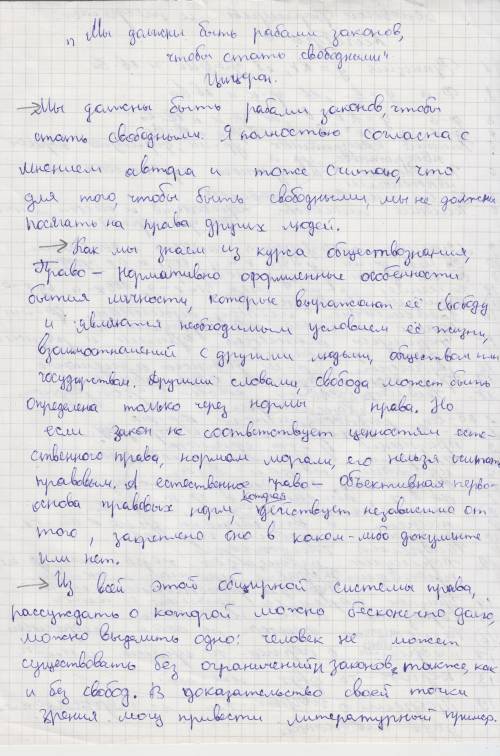 „Мы должны быть рабами законов,
чтобы стать свободными"
Цицерон.
Мы должны быть рабами законов, чтобы
стать свободными. Я полностью согласна с
мнением автора и тоже считаю, что
для того, чтобы быть свободными, мы не должны
посягать на права других людей.
Как мы знаем из курса обществознания,
Право – нормативно оформленные особенности
бытия личности, которые выражают её свободу
и являются необходимым условием её жизни,
взаимоотношений с другими людьми, обществом или
государством. Другими словами, свобода может быть
определена только через нормы права. Но
если закон не соответствует ценностям есте-
ственного права, нормам морали, его нельзя считать
правовым. А естественное право – объективная перво-
основа правовых норм, которая действует независимо от
того, закреплено оно в каком-либо документе
или нет.
Из всей этой обширной системы права,
рассуждать о которой можно бесконечно долго,
можно выделить одно: человек не может
существовать без ограничений и законов, также, как
и без свобод. В доказательство своей точки
зрения могу привести литературный пример.